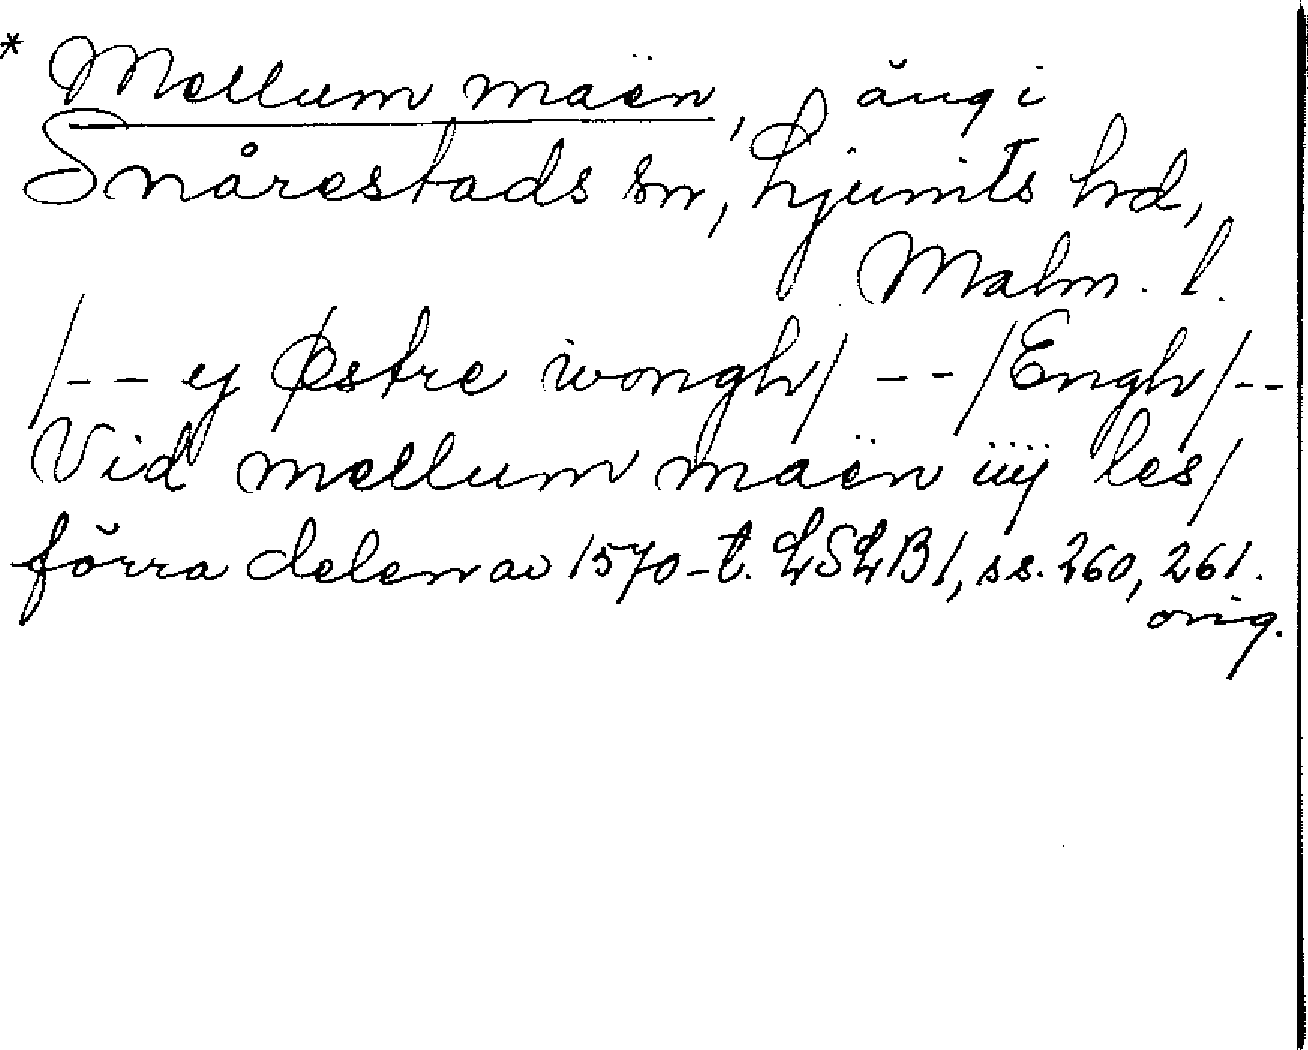 * Mellum maën, äng i
Snårestads sn, Ljunits hd,
Malm. l.
/-- ej Østre wongh/ --/Engh/--
Vid mellum maën iiij les/
förra delen av 1570-t. LSLB1, ss. 260, 261.
orig.